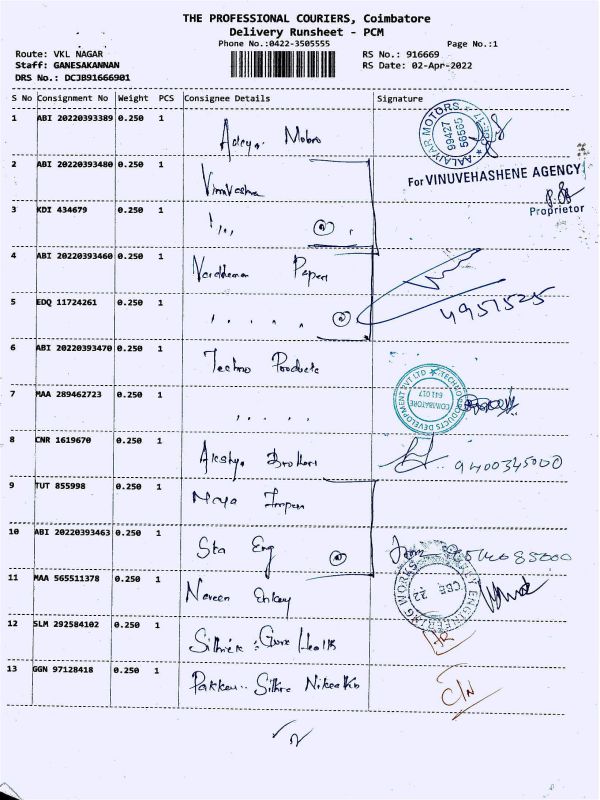 THE PROFESSIONAL COURIERS, Coimbatore
Delivery Runsheet - PCM
Phone No.:0422-3505555
Page No.:1
Route: VKL NAGAR
RS No.: 916669
Staff: GANESAKANNAN
RS Date: 02-Apr-2022
DRS No.: DCJB91666901
S No Consignment No Weight PCS Consignee Details Signature
1 ABI 20220393389 0.250 1
AALAIYAR MOTORS
99427
56565
2 ABI 20220393480 0.250 1
For VINUVEHASHENE AGENCY
Proprietor
3 KDI 434679 0.250 1 ,,
4 ABI 20220393460 0.250 1 Papers
5 EDQ 11724261 0.250 1 , , , , ,
4951525
6 ABI 20220393470 0.250 1 Techno Products
7 MAA 289462723 0.250 1 , , , , ,
TECHNO PRODUCTS DEVELOPMENT PVT LTD
COIMBATORE
641 017
8 CNR 1619670 0.250 1 Akshya Brothers
9400345000
9 TUT 855998 0.250 1
10 ABI 20220393463 0.250 1 Sta Eng
11 MAA 565511378 0.250 1 Naveen
ENGINEERING WORKS
CBE 22
12 SLM 292584102 0.250 1
13 GGN 97128418 0.250 1